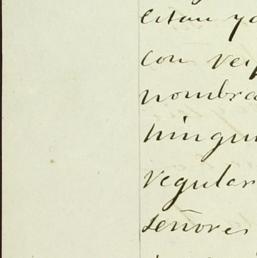 citan ya
con res
nombra
ningun
regular
señores